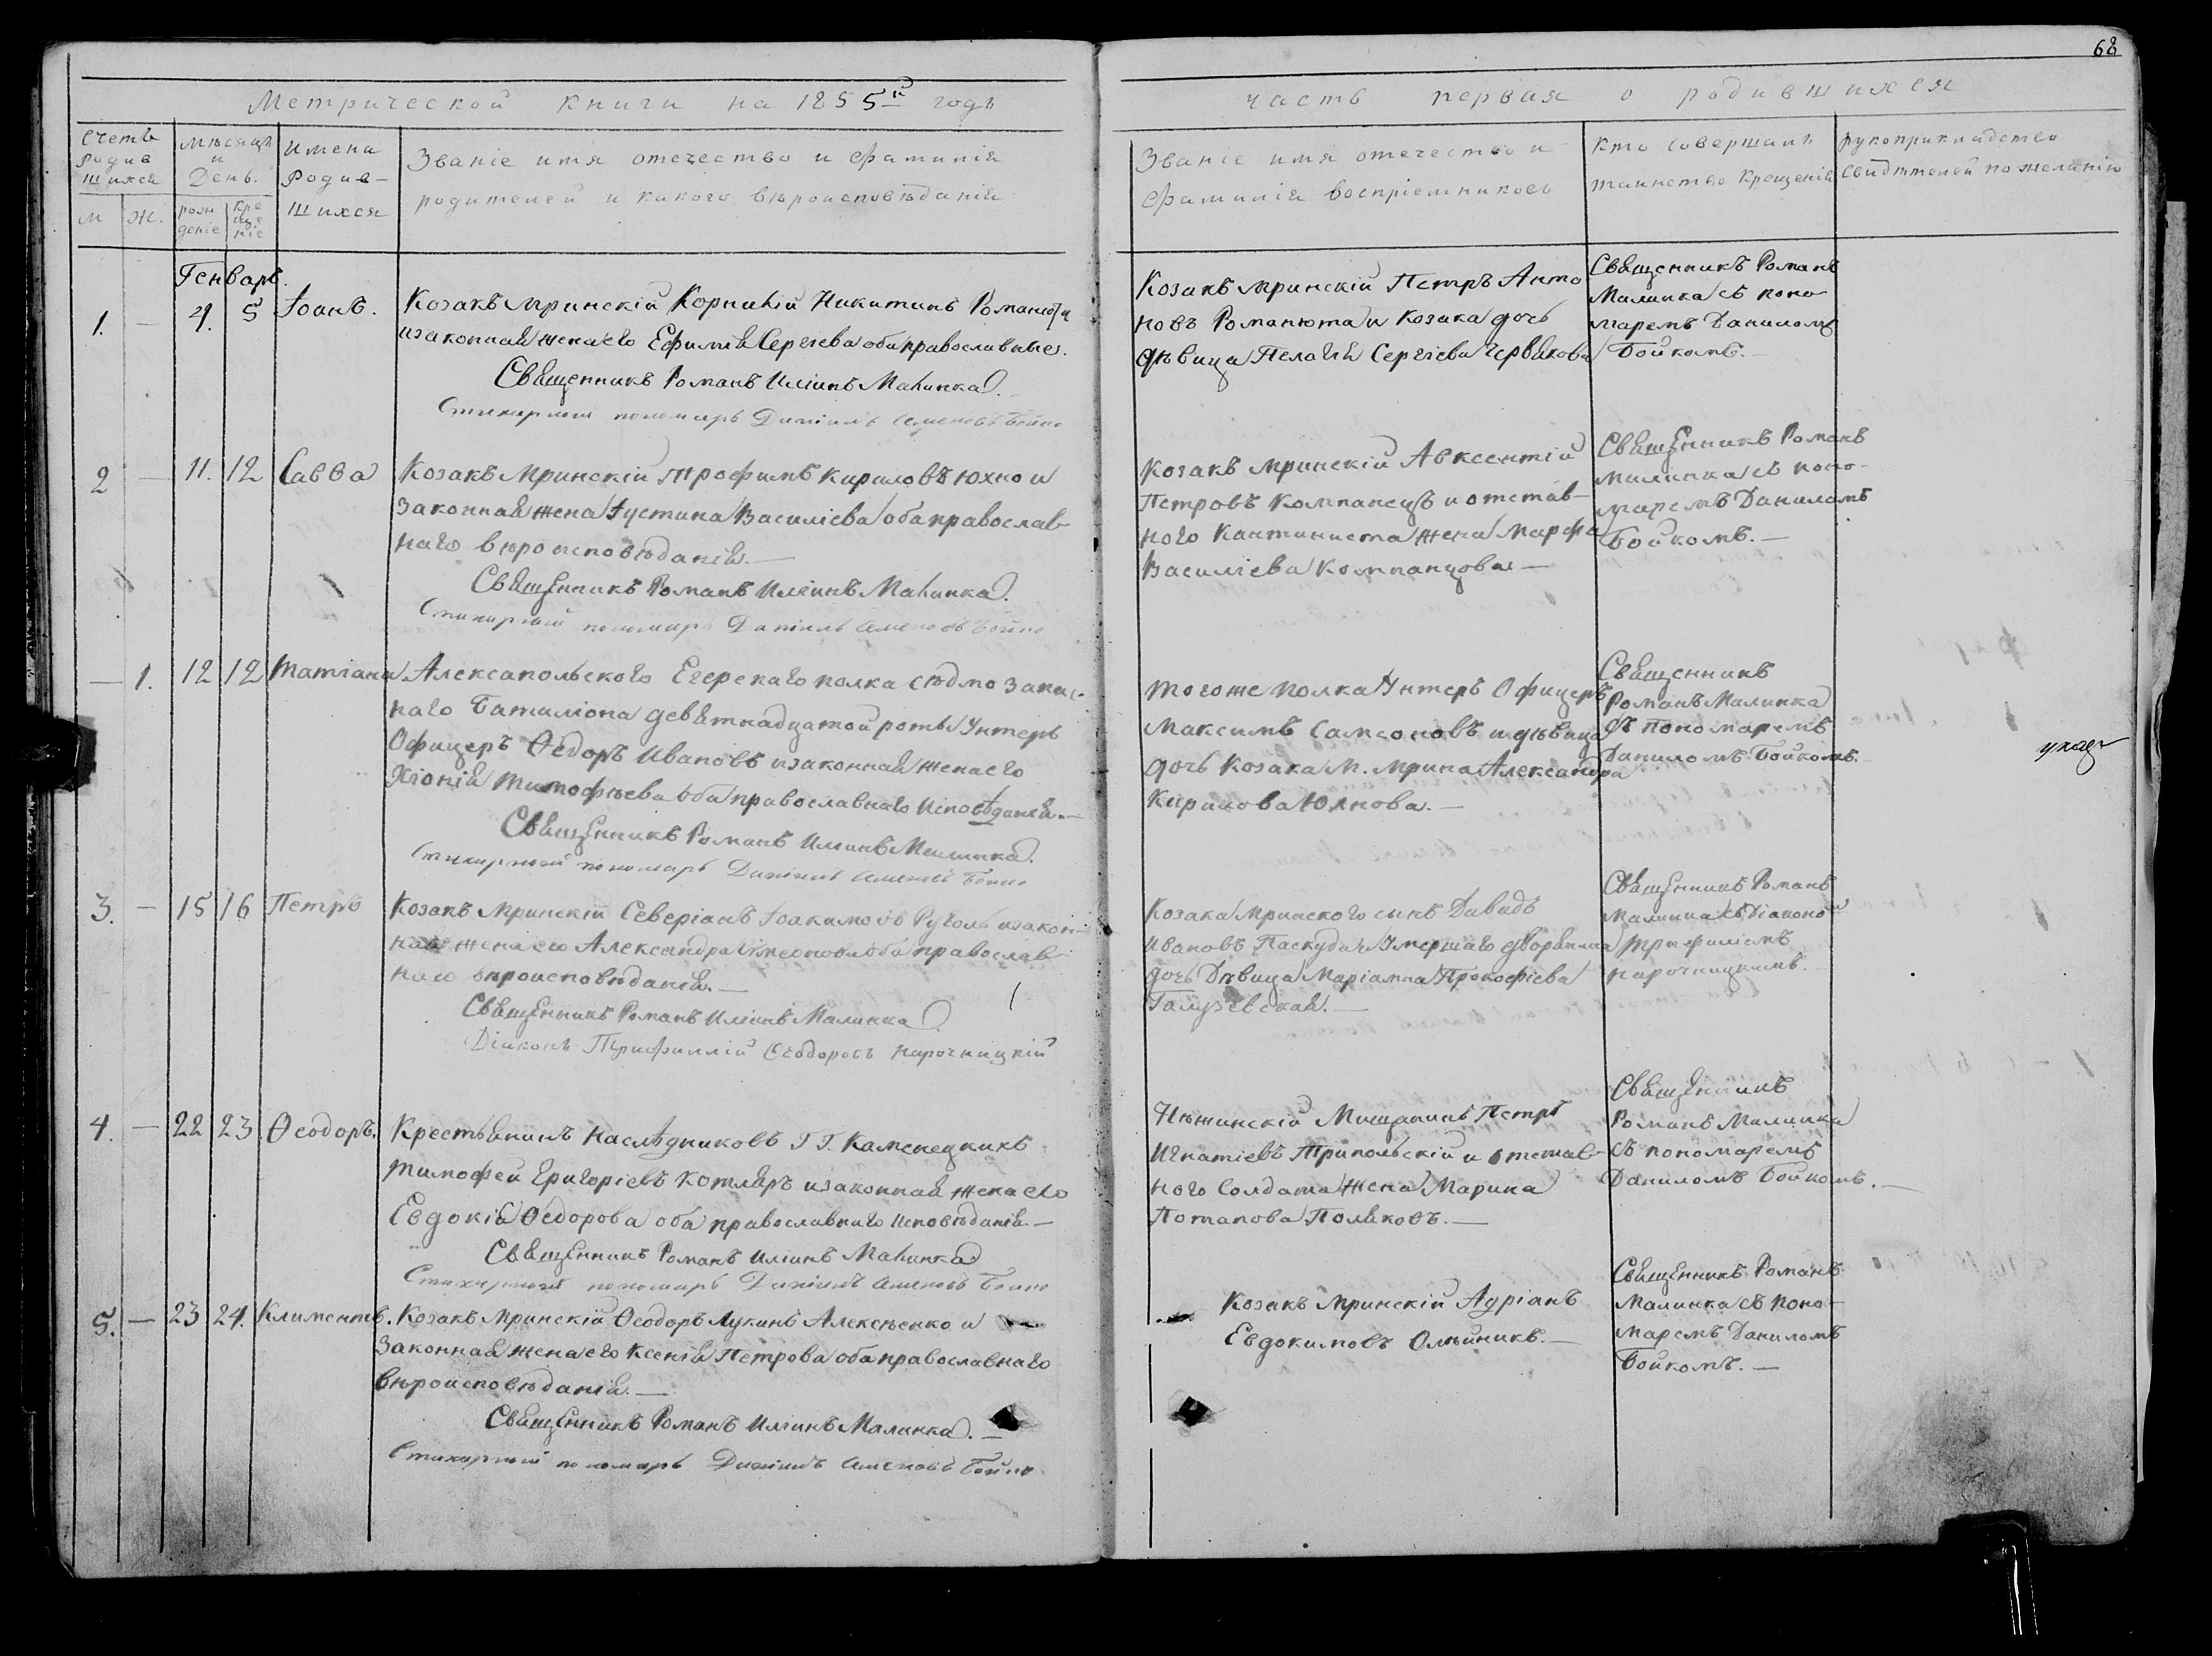 68
Метрической книги на 1855й годъ
часть первая о родившихся
Счетъ родившихся
М. Ж.
Мѣсяцъ и День.
рождение крещение
Имена Родившихся
Званіе имя отечество и фамилія
родителей и какого вѣроисповѣданія
Званіе имя отечество и
фамилія воспріемниковъ
Кто совершалъ
таинство Крещенія
Рукоприкладство
свидѣтелей по желанію
Генварь.
1. — 4. 5 Іоанъ.
Козакъ мринскій Корнилій Никитинъ Романюта
и законная жена его Ефимія Сергіева оба православные.
Священникъ Романъ Иліинъ Малинка.
Стихарный пономарь Даніилъ Семеновъ Бойко
Козакъ мринскій Петръ Анто
новъ Романюта и козака дочь
дѣвица Пелагія Сергіева Червякова
Священникъ Романъ
Малинка съ поно
маремъ Даниломъ
Бойкомъ.
2 — 11. 12 Савва
Козакъ мринскій Трофимъ Кириловъ Юхно и
законная жена Іустина Василіева оба православ
наго вѣроисповѣданія. —
Священникъ Романъ Иліинъ Малинка.
Стихарный пономарь Даніилъ Семеновъ Бойко
Козакъ мринскій Авксентій
Петровъ Компанецъ и отстав-
ного Кантиниста жена Марфа
Василіева Компанцова —
Священникъ Романъ
Малинка съ поно-
маремъ Даниломъ
Бойкомъ. —
— 1. 12 12 Татіана
Алексапольского Егерскаго полка седмо запас-
наго Баталіона девятнадцатой роты Унтеръ
Офицеръ Ѳедоръ Ивановъ и законная жена его
Хіонія Тимофѣева оба православнаго исповѣданія. —
Священникъ Романъ Иліинъ Малинка.
Стихарный пономарь Даніилъ Семеновъ Бойко
Того же полка Унтеръ Офицеръ
Максимъ Самсоновъ и дѣвица
дочь козака м. Мрина Александра
Кирилова Юхнова. —
Священникъ
Романъ Малинка
съ пономаремъ
Даниломъ Бойкомъ.
3. — 15 16 Петръ
Козакъ мринскій Северіанъ Іоакимовъ и закон-
ная жена его Александра Симеонова оба православ
наго вѣроисповѣданія. —
Священникъ Романъ Иліинъ Малинка
Діаконъ Трифиллій Ѳеодоровъ Нарочницкій
Козака мринского сынъ Давидъ
Ивановъ Паскудич Умершаго дворянина
дочь Дѣвица Маріамна Прокофіева
Галузевская. —
Священникъ Романъ
Малинка съ Діаконом
Трифиліемъ
Нарочницкимъ.
4. — 22 23. Ѳеодоръ.
Крестьянинъ Наслѣдниковъ Г.Г. Каменецкихъ
Тимофей Григоріевъ Котляръ и законная жена его
Евдокія Ѳедорова оба православнаго исповѣданія. —
Священникъ Романъ Иліинъ Малинка
Стихарный пономарь Даніилъ Семеновъ Бойко
Нѣжинскій Мищанинъ Петръ
Игнатіевъ Трипольскій и отстав
ного Солдата жена Марина
Потапова Поляковъ. —
Священникъ
Романъ Малинка
съ пономаремъ
Даниломъ Бойкомъ. —
5. — 23 24. Климентъ.
Козакъ мринскій Ѳеодоръ Лукинъ Алексѣенко и
законная жена его Ксенія Петрова оба православнаго
вѣроисповѣданія. —
Священникъ Романъ Иліинъ Малинка. —
Стихарный пономарь Даніилъ Семеновъ Бойко
Козакъ мринскій Адріанъ
Евдокимовъ Олѣйникъ. —
Священникъ Романъ
Малинка съ поно-
маремъ Даниломъ
Бойкомъ. —